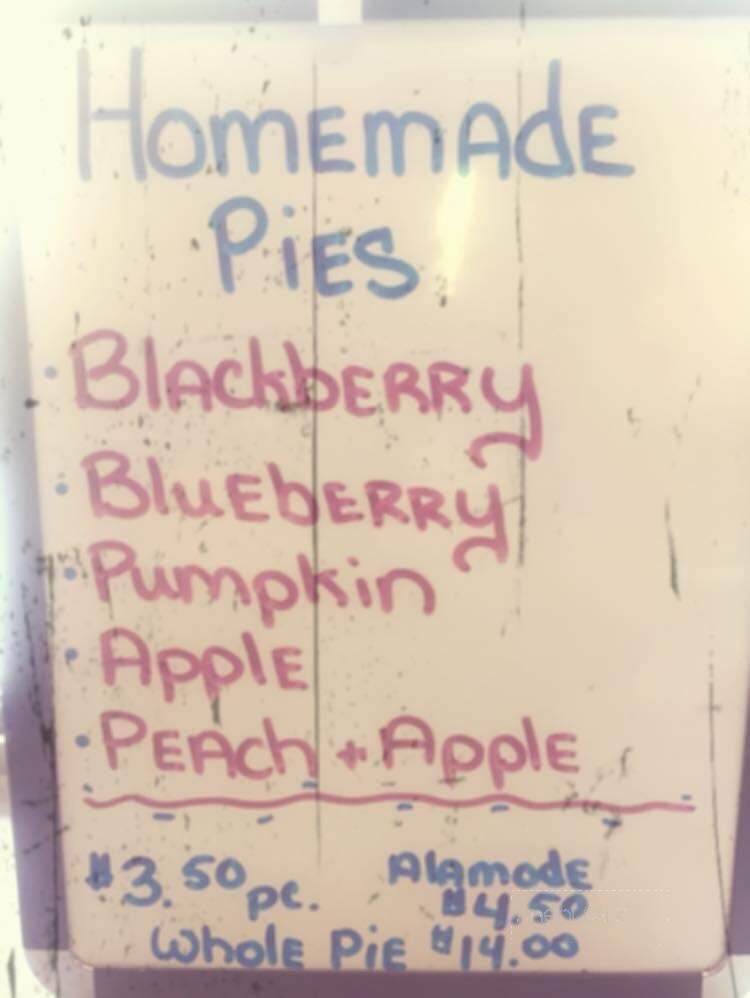 HOMEMADE
PiES
• BlACkbERRy
• BluEbERRy
• Pumpkin
• ApplE
• PEACh + ApplE
$3.50 pc. AlAmodE
$4.50
WholE PiE $14.00